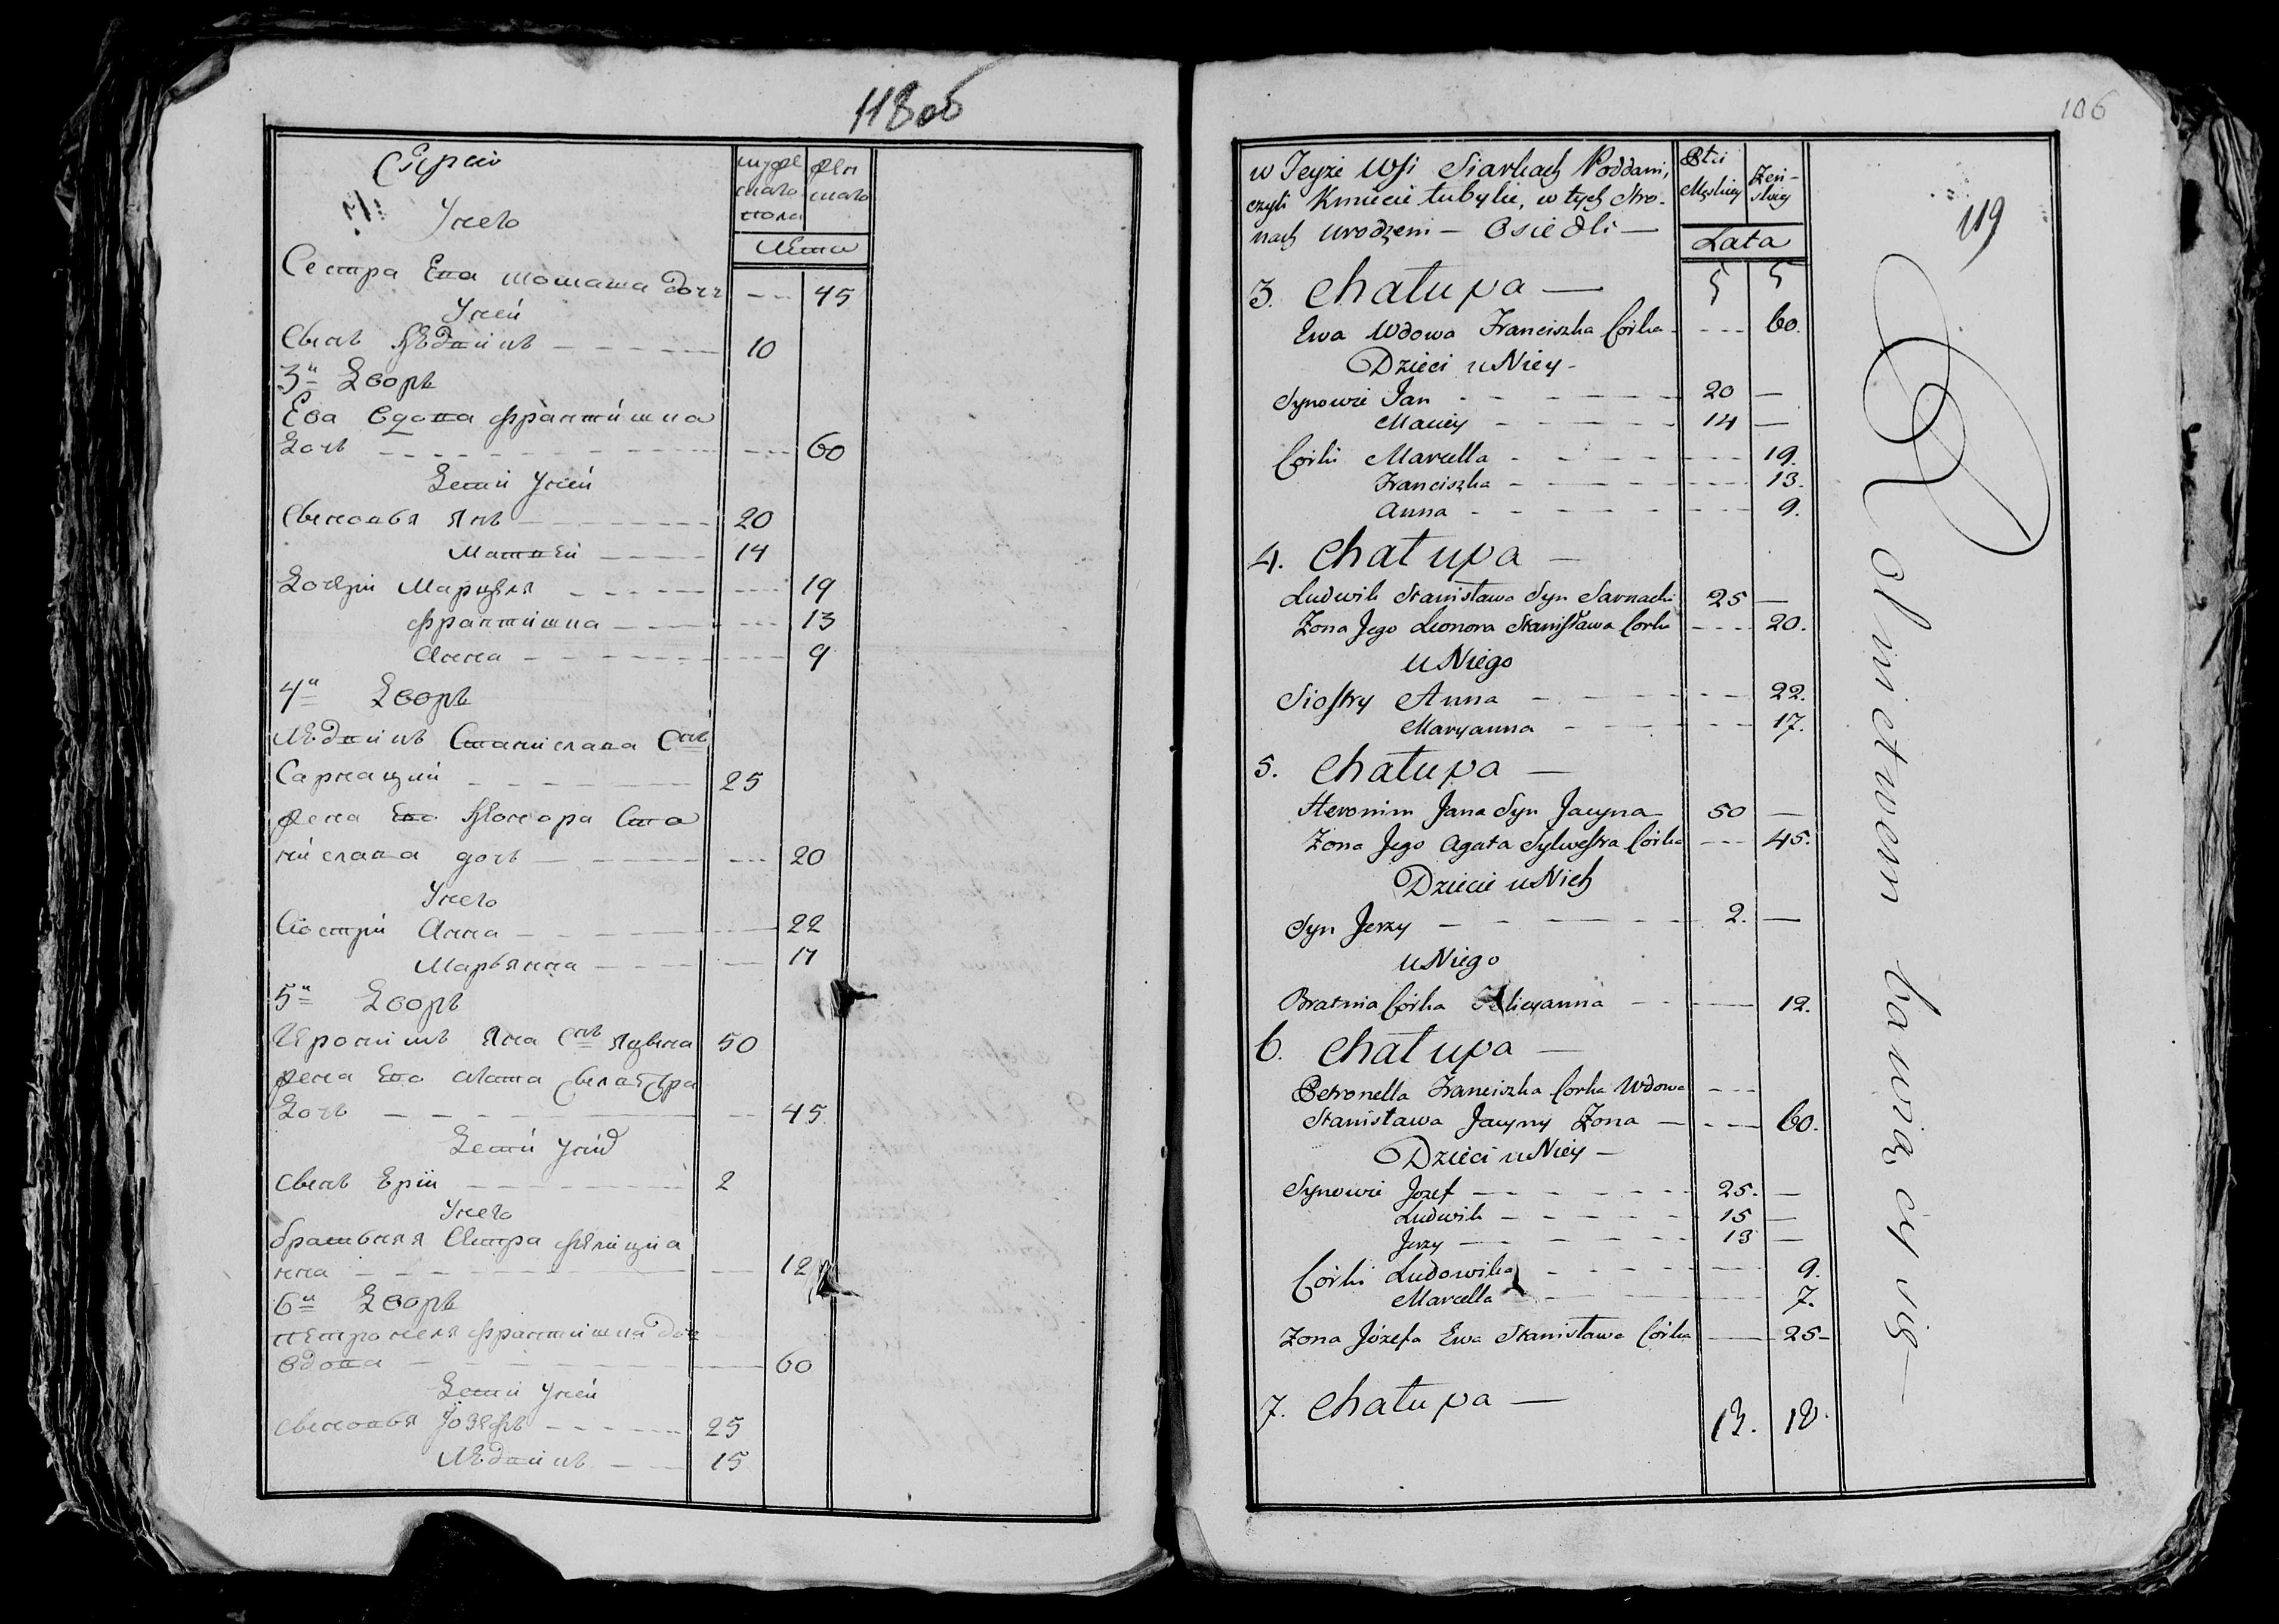 118об
Сярки
Унего
мужескаго пола
женскаго
Лета
Сестра Ева томаша дочь -- 45
Уней
Сынъ Людвикъ 10
3й Дворъ
Ева вдова францишка
Дочь 60
Дети Уней
Сыновья Янъ 20
Матвей 14
Дочери Марцеля 19
францишка 13
Анна 9
4й Дворъ
Людвикъ Станислава Снъ
Сарнацкий 25
жена Ево Леонора Ста
нислава дочь 20
Унего
Сiостры Анна 22
Марьянна 17
5й Дворъ
Иеронимъ Яна Снъ Яцына 50
жена Ево Агата Сылвестра
Дочь 45
Дети Уних
Сынъ Ерiй 2
Унего
братьняя Сестра фелициа
нна 12
6й Дворъ
петронеля францишка дочь
вдова 60
Дети Уней
Сыновья Iозефъ 25
Людвикъ 15
106
119
w Teyże Wsi Siarkach Poddani,
czyli Kmiecie tubylce, w tych stro-
nach urodzeni — Osiedli —
Płci
Męskiey
Żeń-
skiey
Lata
3. Chałupa — 5 5
Ewa Wdowa Franciszka Córka --- 60.
Dzieci u Niey -
Synowie Jan 20 —
Maciey 14 —
Córki Marcella 19.
Franciszka 13.
Anna 9.
4. Chałupa —
Ludwik Stanisława Syn Sarnacki 25 —
Żona Jego Leonora Stanisława Corka --- 20.
u Niego
Siostry Anna 22.
Maryanna 17.
5. Chałupa —
Heronim Jana Syn Jacyna 50 —
Żona Jego Agata Sylwestra Córka --- 45.
Dziecie u Nich
Syn Jerzy 2. —
u Niego
Bratnia Córka Felicyanna 12.
6. Chałupa —
Petronella Franciszka Corka Wdowa ---
Stanisława Jacyny Żona — --- 60.
Dzieci u Niey —
Synowie Jozef 25. —
Ludwik 15 —
Jerzy 13 —
Córki Ludowika 9.
Marcella 7.
Żona Józefa Ewa Stanisława Córka 25-
7. Chałupa —
13. 18.
Rolnictwem bawiący się —